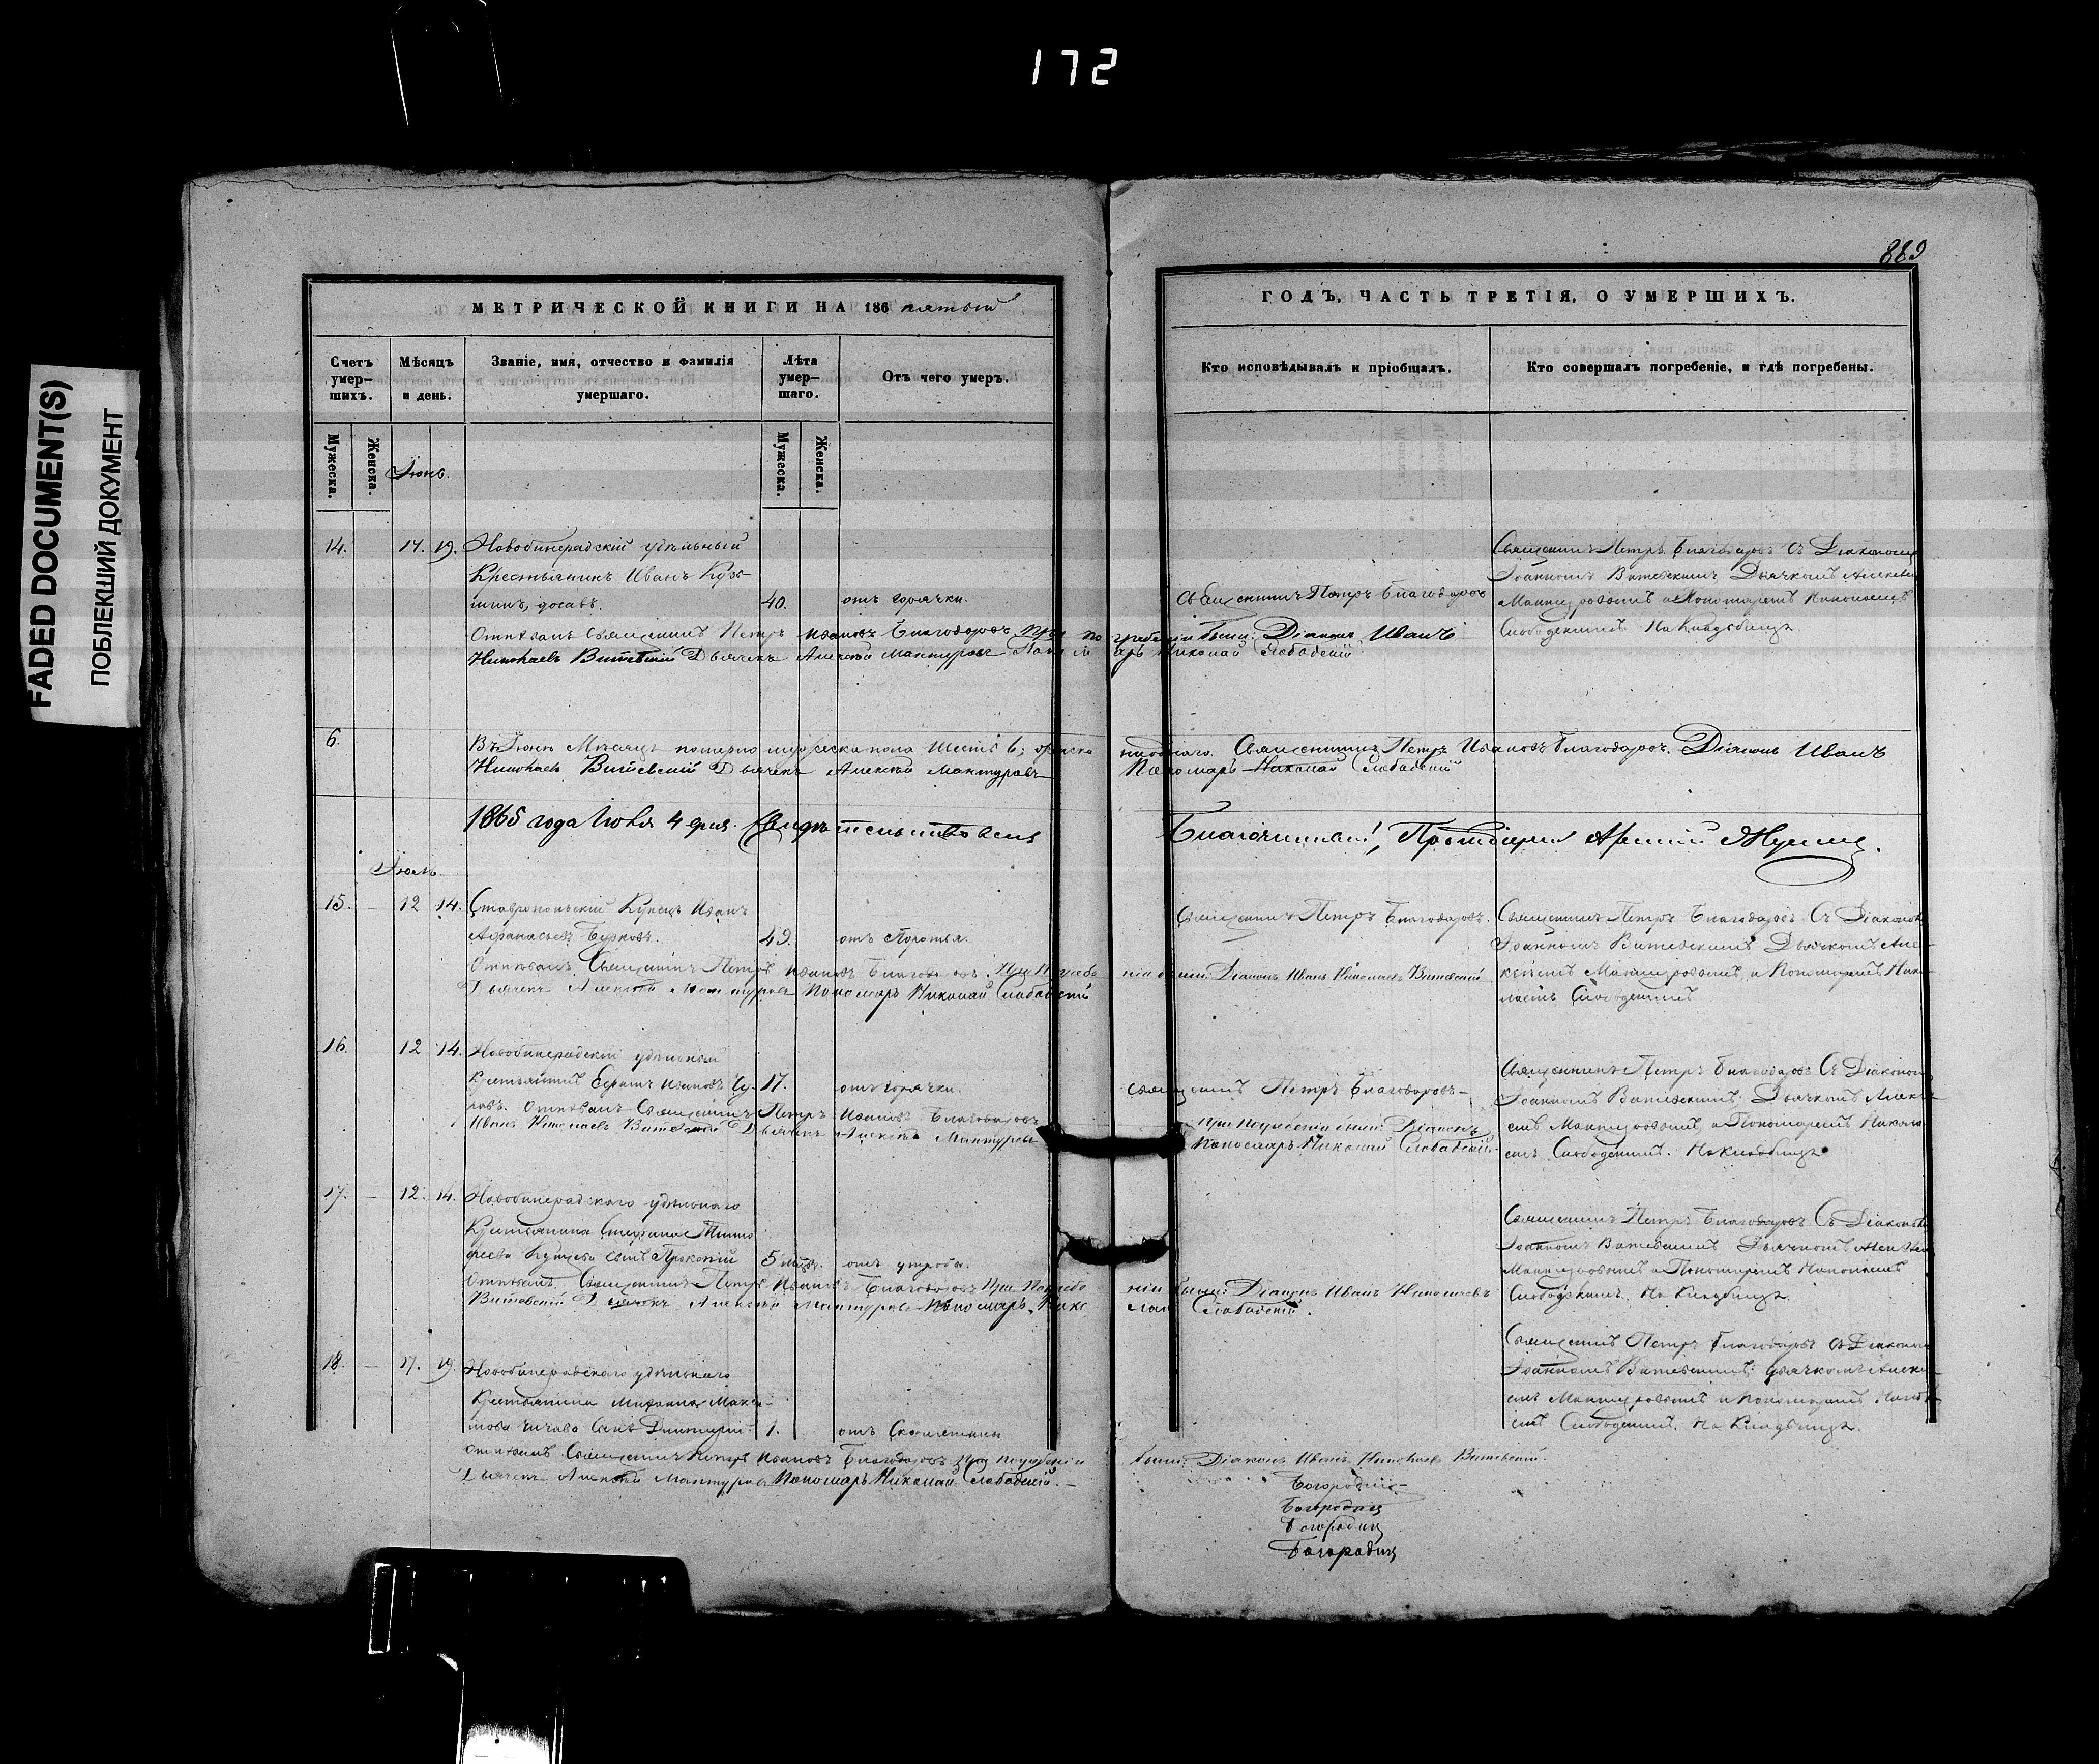 172
FADED DOCUMENT(S)
ПОБЛЕКШИЙ ДОКУМЕНТ
889
МЕТРИЧЕСКОЙ КНИГИ НА 186 пятый
Счетъ умер-шихъ.
Мѣсяцъ и день.
Званіе, имя, отчество и фамилія умершаго.
Лѣта умер-шаго.
Отъ чего умеръ.
Мужеска.
Женска.
Мужеска.
Женска.
Іюнь.
14. 17. 19. Новобинерадскій удѣльный
Крестьянинъ Иванъ Кузь-
40. отъ горячки.
Отпѣвалъ Священникъ Петръ Ивановъ Благодаровъ при по
Николаевъ Витевскій Дьячекъ Алексѣй Мантуровъ Поно м
6. Въ Іюнѣ Мѣсяцѣ померло мужеска пола шесть 6; женска
Николаевъ Витевскій Дьячекъ Алексѣй Мантуровъ
1865 года Іюля 4 дня Свидѣтельствовалъ
Іюль
15. — 12 14. Ставропольскій Купецъ Иванъ
Афанасьевъ Бурковъ. 49. отъ
Отпѣвалъ Священникъ Петръ Ивановъ Благодаровъ. При Погребе
Дьячекъ Алексѣй Мантуровъ Пономарь Николай Слободскій
16. 12 14. Новобинерадскій удѣльный
Крестьянинъ Ефимъ Ивановъ Чу- 17. отъ горячки.
ровъ. Отпѣвалъ Священникъ Петръ Ивановъ Благодаровъ
Иванъ Николаевъ Витевскій Дьячекъ Алексѣй Мантуровъ
17. — 12. 14. Новобинерадскаго удѣльнаго
Крестьянина Стефана Тимо
феева сынъ Прокопій 5 отъ утробы.
Отпѣвалъ Священникъ Петръ Ивановъ Благодаровъ При Погребе
Витевскій Дьячекъ Алексѣй Мантуровъ Пономарь Нико
18. — 17. 19. Новобинерадскаго удѣльнаго
Крестьянина Михаила Макси-
мова сынъ Димитрій 1. отъ
отпѣвалъ Священникъ Петръ Ивановъ Благодаровъ При погребеніи
Дьячекъ Алексѣй Мантуровъ Пономарь Николай Слободскій. —
ГОДЪ, ЧАСТЬ ТРЕТІЯ, О УМЕРШИХЪ.
Кто исповѣдывалъ и пріобщалъ.
Кто совершалъ погребеніе, и гдѣ погребены.
Священникъ Петръ Благодаровъ
гребеніи были: Діаконъ Иванъ
арь Николай Слободскій
Священникъ Петръ Благодаровъ Съ Діакономъ
Іоанномъ Витевскимъ, Дьячкомъ Алексѣе
Мантуровымъ и Пономаремъ Николаемъ
Слободскимъ На Кладбищѣ.
ниодного. Священникъ Петръ Ивановъ Благодаровъ. Діаконъ Иванъ
Пономарь Николай Слободскій
Благочинный, Протоіерей
Священникъ Петръ Благодаровъ.
ніи были: Діаконъ Иванъ Николаевъ Витевскій
Священникъ Петръ Благодаровъ Съ Діакономъ
Іоанномъ Витевскимъ Дьячкомъ Але-
ксѣемъ Мантуровымъ и Пономаремъ Нико-
лаемъ Слободскимъ
Священникъ Петръ Благодаровъ —
При погребеніи были: Діаконъ
Пономарь Николай Слободскій
Священникъ Петръ Благодаровъ Съ Діакономъ
Іоанномъ Витевскимъ Дьячкомъ Алексѣ
емъ Мантуровымъ и Пономаремъ Никола
емъ Слободскимъ. На Кладбищѣ
ніи были: Діаконъ Иванъ Николаевъ
лай Слободскій.
Священникъ Петръ Благодаровъ Съ Діакономъ
Іоанномъ Витевскимъ Дьячкомъ Алексѣе
Мантуровымъ и Пономаремъ Николаемъ
Слободскимъ. На Кладбищѣ.
Священникъ Петръ Благодаровъ Съ Діакономъ
Іоанномъ Витевскимъ, Дьячкомъ Алексѣ
емъ Мантуровымъ и Пономаремъ Никола
емъ Слободскимъ. На Кладбищѣ.
были: Діаконъ Иванъ Николаевъ Витевскій.
Богородиц
Богородиц
Богородиц
Богородиц